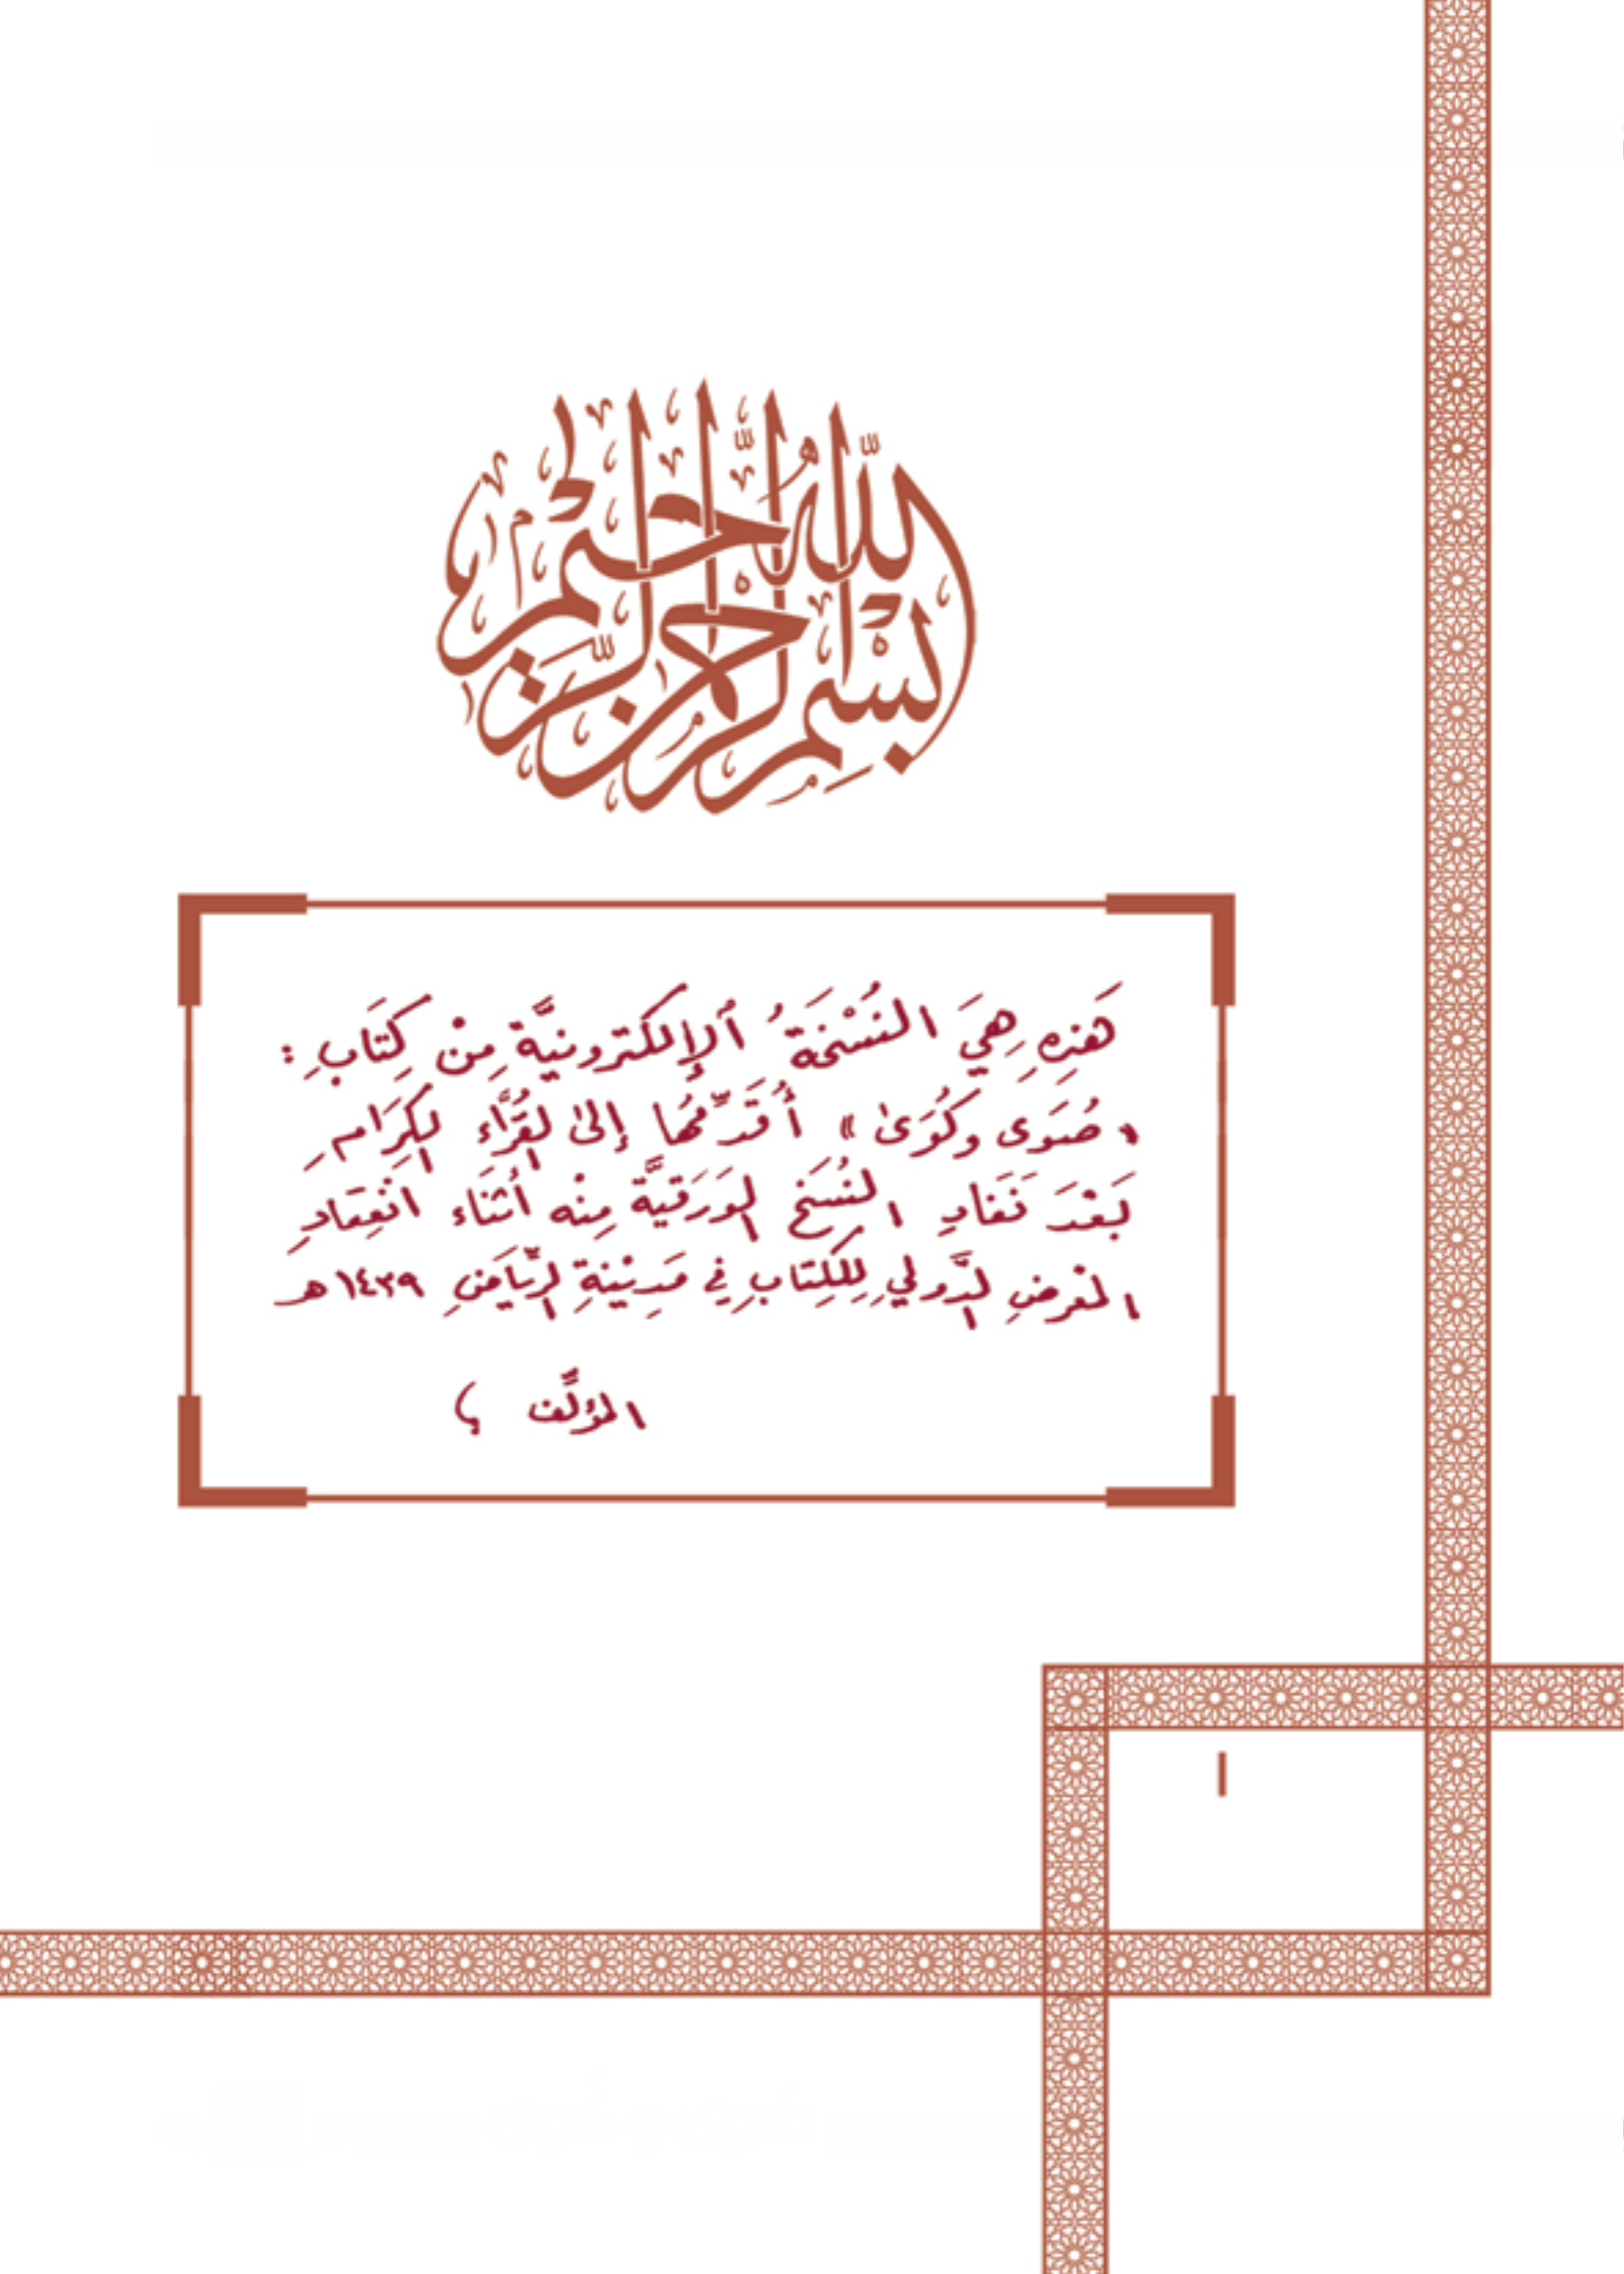 بسم الله الرحمن الرحيم
هَذِهِ هِيَ النُّسْخَةُ الإِلكترونيَّة مِنْ كِتَابِ :
« صُوَى وكُوَىٰ » أُقَدِّمُها إلىٰ القُرَّاءِ الكِرَامِ
بَعْدَ نَفَادِ النُّسَخِ الوَرَقيَّةِ مِنْه أثنَاء انْعِقَادِ
المعْرضِ الدَّولي لِلكِتَابِ في مَدِيْنةِ الرِّيَاضِ ١٤٣٩هـ
المؤلِّف
١